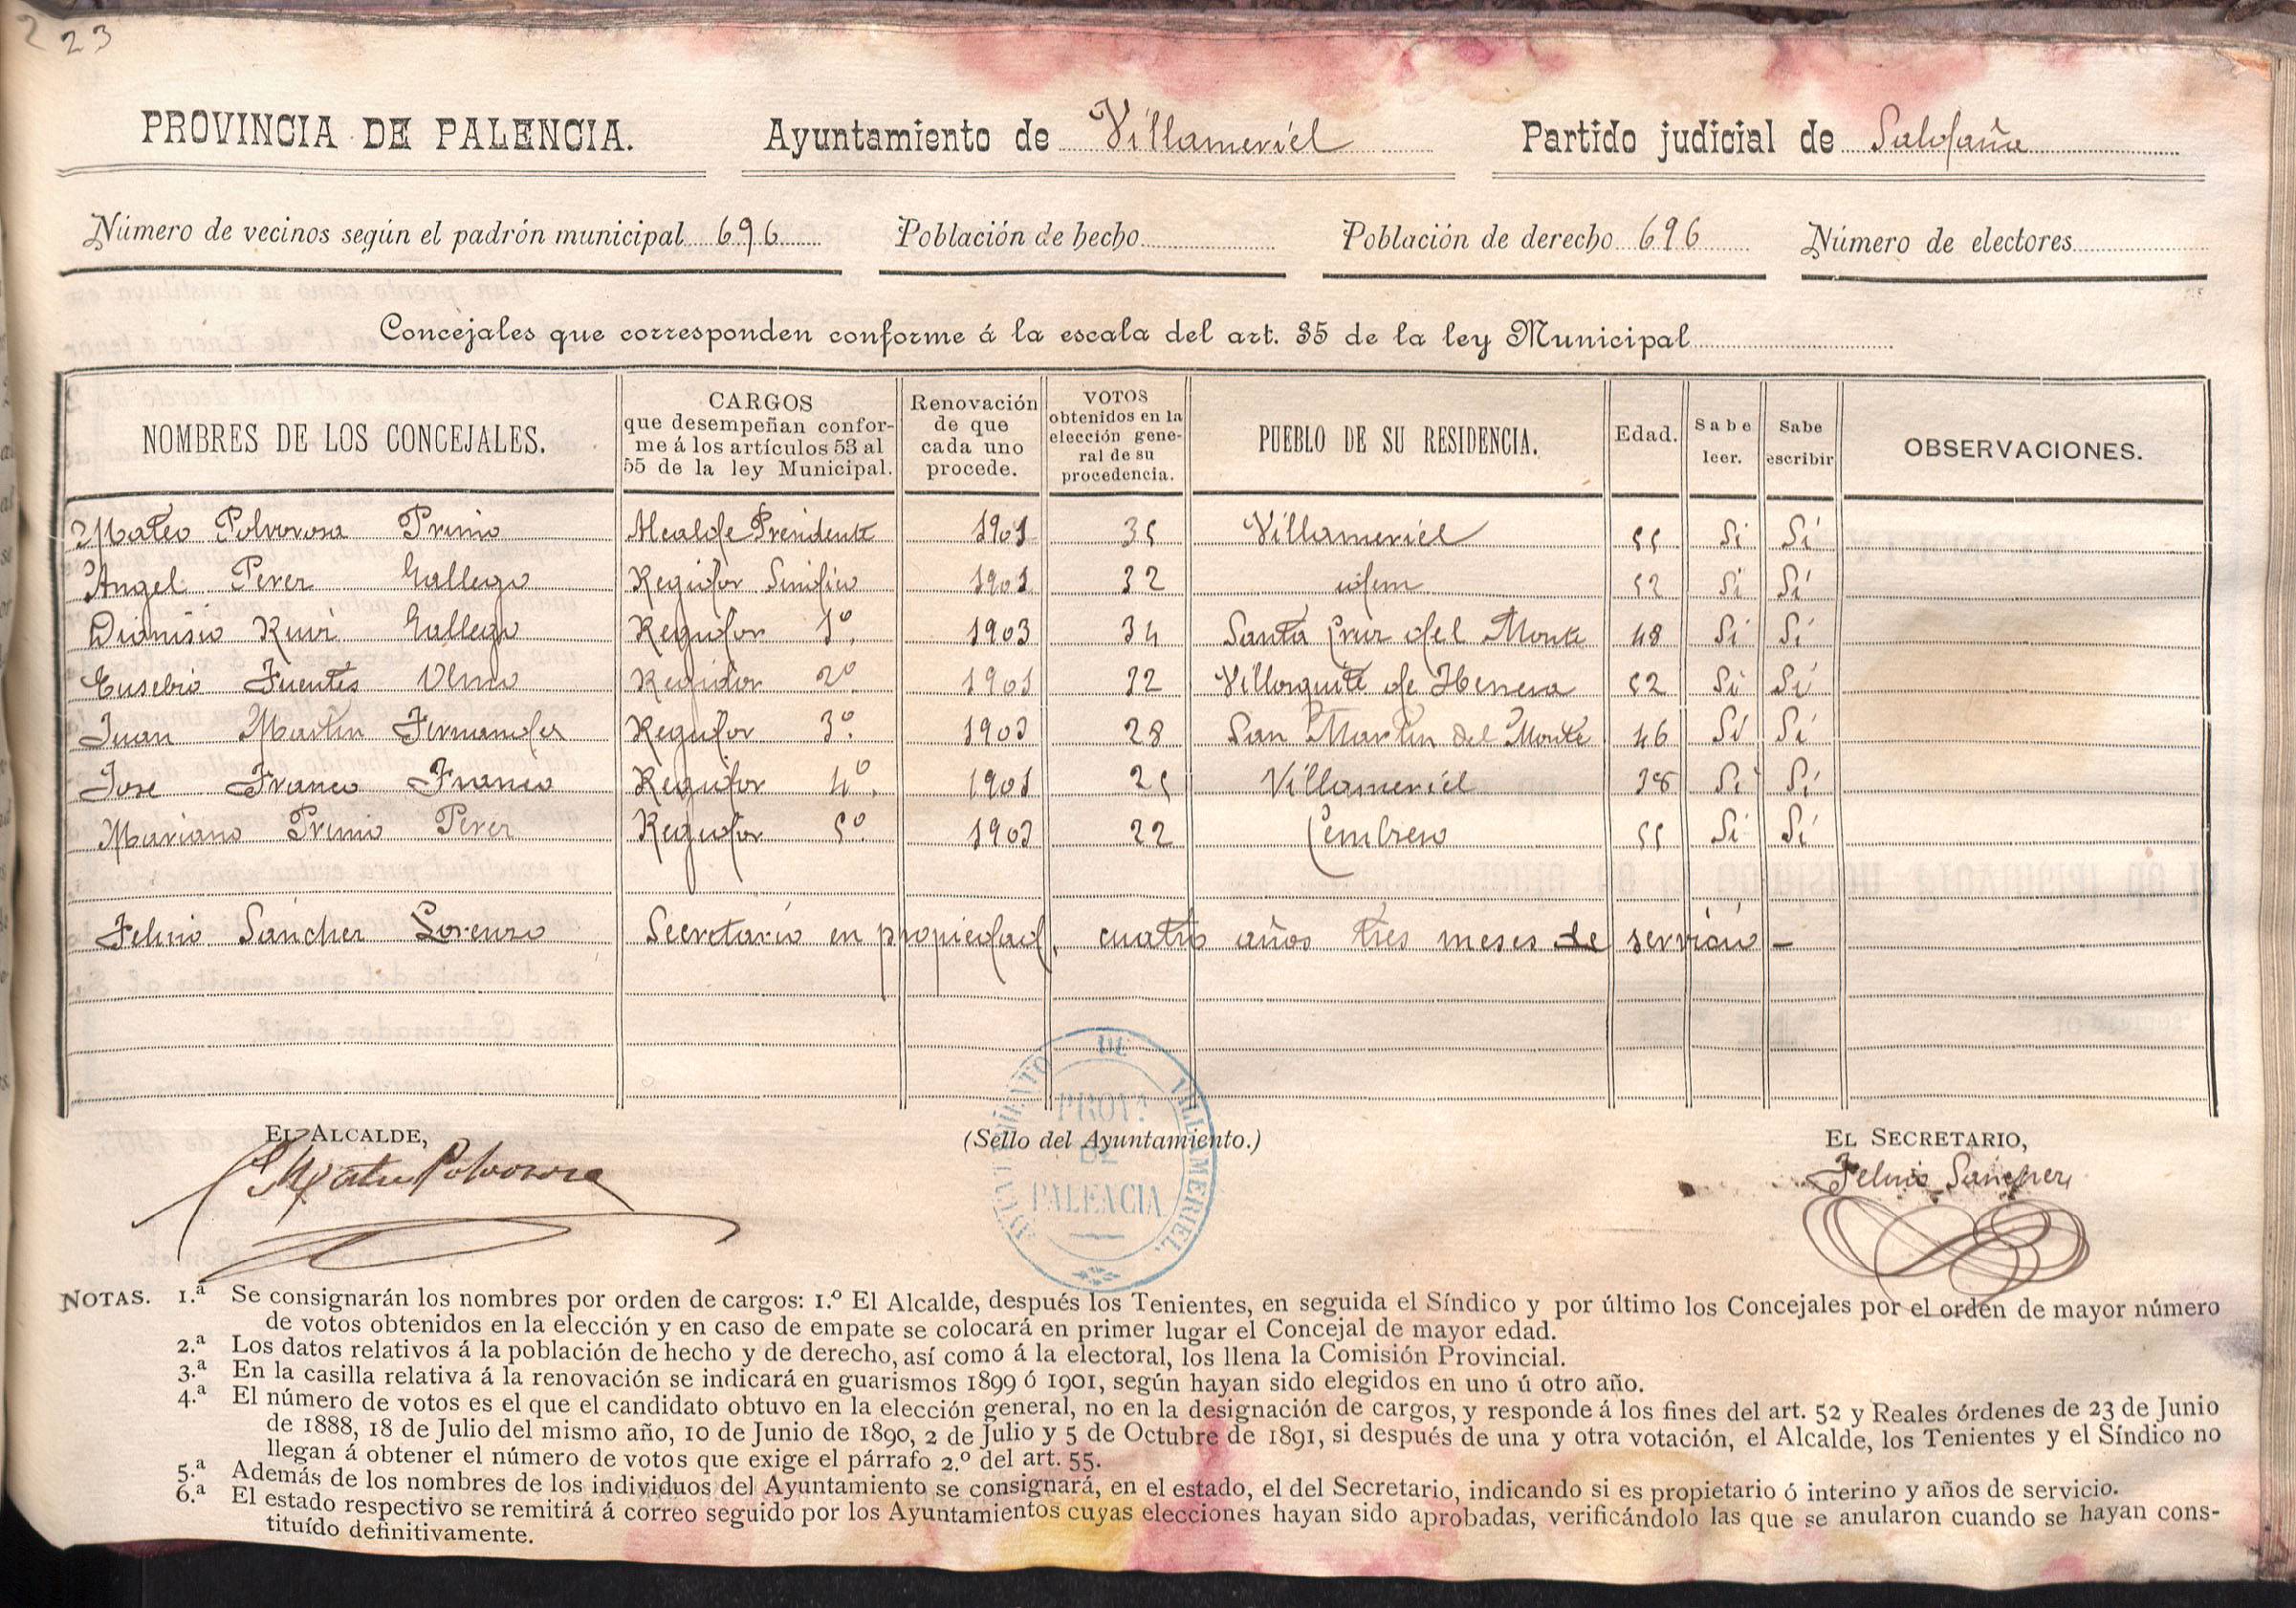 223
PROVINCIA DE PALENCIA. Ayuntamiento de Villameriel Partido judicial de Saldaña
Número de vecinos según el padrón municipal 696 Población de hecho Población de derecho 696 Número de electores
Concejales que corresponden conforme á la escala del art. 35 de la ley Municipal
NOMBRES DE LOS CONCEJALES. CARGOS que desempeñan conforme á los artículos 53 al 55 de la ley Municipal. Renovación de que cada uno procede. VOTOS obtenidos en la elección general de su procedencia. PUEBLO DE SU RESIDENCIA. Edad. Sabe leer. Sabe escribir OBSERVACIONES.
Mateo Polvorosa Primo Alcalde Presidente 1901 35 Villameriel 55 Si Sí
Angel Perez Gallego Regidor Sindico 1901 32 idem 52 Si Sí
Dionisio Ruiz Gallego Regidor 1º. 1903 34 Santa Cruz del Monte 48 Si Sí
Eusebio Fuentes Olmo Regidor 2º. 1901 32 Villorquite de Herrera 52 Si Sí
Juan Martin Fernandez Regidor 3º. 1903 28 San Martin del Monte 46 Si Sí
Jose Franco Franco Regidor 4º. 1901 25 Villameriel 38 Si Sí
Mariano Primo Perez Regidor 5º. 1903 22 Cembrero 55 Si Sí
Sánchez Lorenzo Secretario en propiedad, cuatro años tres meses de servicio -
EL ALCALDE, (Sello del Ayuntamiento.) EL SECRETARIO,
Mateo Polvorosa
Sanchez
AYUNTAMIENTO DE VILLAMERIEL.
PROVª
DE
PALENCIA
NOTAS. 1.ª Se consignarán los nombres por orden de cargos: 1.º El Alcalde, después los Tenientes, en seguida el Síndico y por último los Concejales por el orden de mayor número
de votos obtenidos en la elección y en caso de empate se colocará en primer lugar el Concejal de mayor edad.
2.ª Los datos relativos á la población de hecho y de derecho, así como á la electoral, los llena la Comisión Provincial.
3.ª En la casilla relativa á la renovación se indicará en guarismos 1899 ó 1901, según hayan sido elegidos en uno ú otro año.
4.ª El número de votos es el que el candidato obtuvo en la elección general, no en la designación de cargos, y responde á los fines del art. 52 y Reales órdenes de 23 de Junio
de 1888, 18 de Julio del mismo año, 10 de Junio de 1890, 2 de Julio y 5 de Octubre de 1891, si después de una y otra votación, el Alcalde, los Tenientes y el Síndico no
llegan á obtener el número de votos que exige el párrafo 2.º del art. 55.
5.ª Además de los nombres de los individuos del Ayuntamiento se consignará, en el estado, el del Secretario, indicando si es propietario ó interino y años de servicio.
6.ª El estado respectivo se remitirá á correo seguido por los Ayuntamientos cuyas elecciones hayan sido aprobadas, verificándolo las que se anularon cuando se hayan cons-
tituído definitivamente.